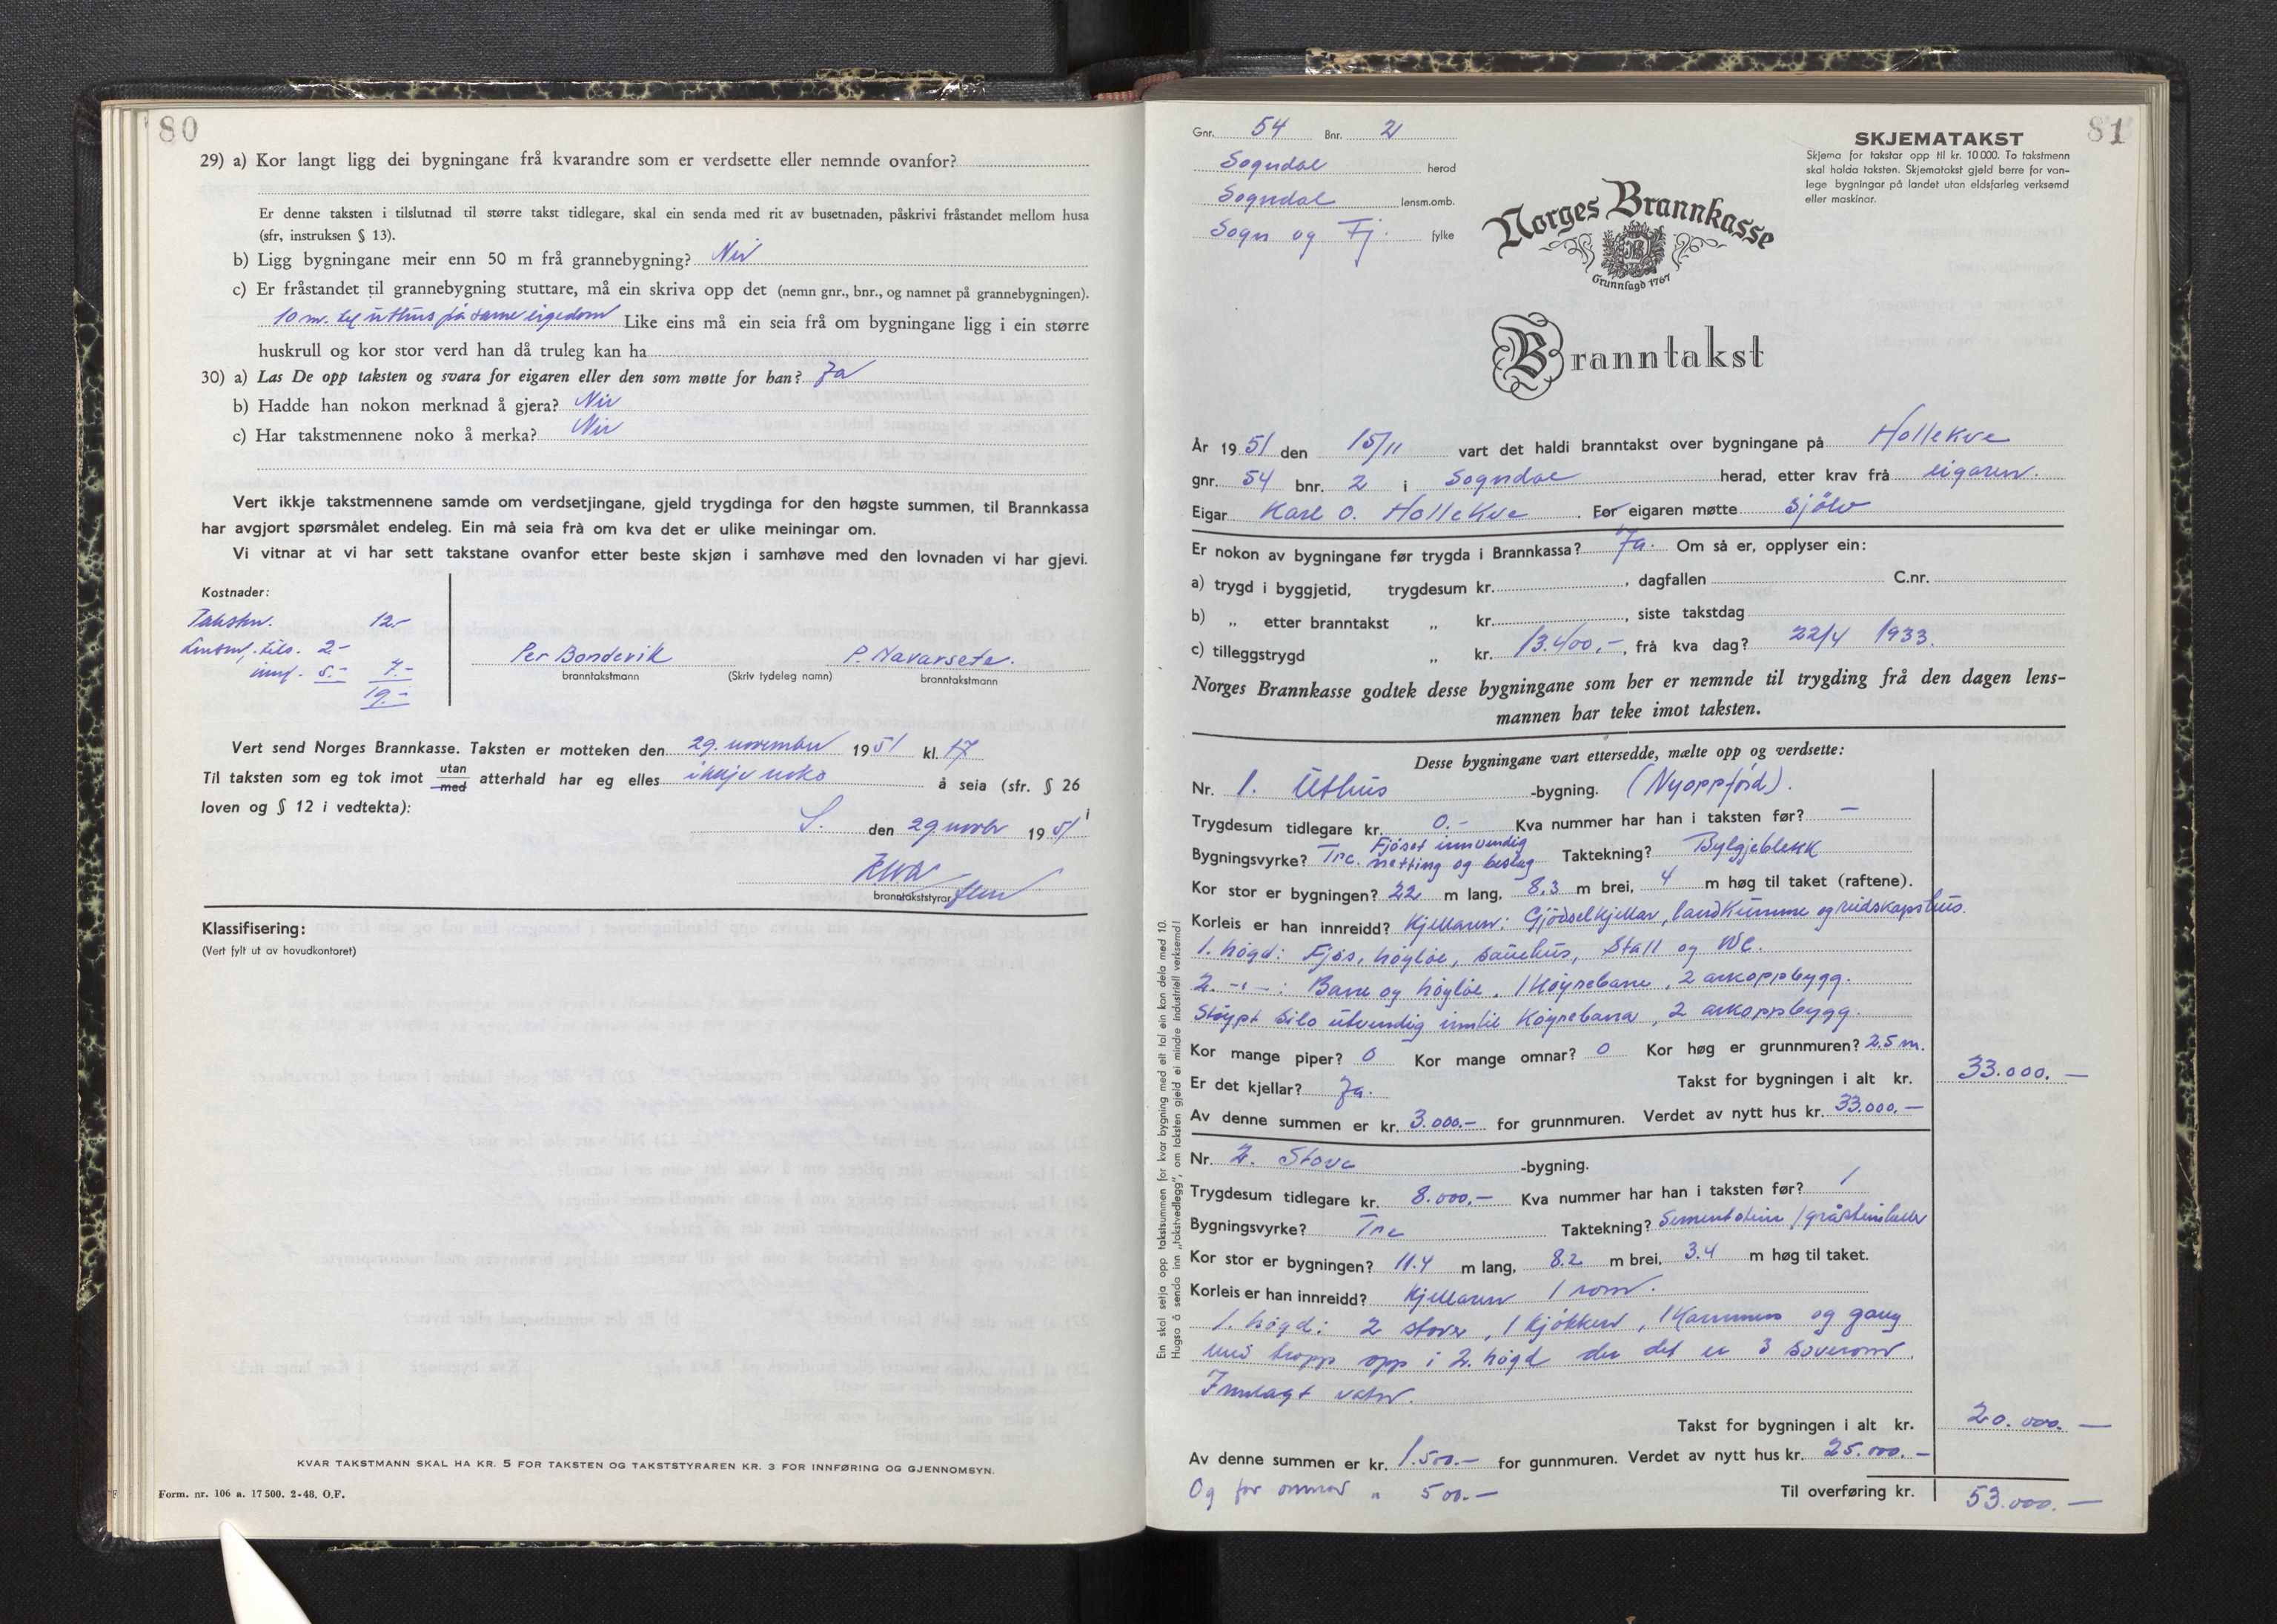 80
29) a) Kor langt ligg dei bygningane frå kvarandre som er verdsette eller nemnde ovanfor?
Er denne taksten i tilslutnad til større takst tidlegare, skal ein senda med rit av busetnaden, påskrivi fråstandet mellom husa
(sfr, instruksen § 13).
b) Ligg bygningane meir enn 50 m frå grannebygning? Nei
c) Er fråstandet til grannebygning stuttare, må ein skriva opp det (nemn gnr., bnr., og namnet på grannebygningen).
10 m. til uthus på same eigedom Like eins må ein seia frå om bygningane ligg i ein større
huskrull og kor stor verd han då truleg kan ha
30) a) Las De opp taksten og svara for eigaren eller den som møtte for han? Ja
b) Hadde han nokon merknad å gjera? Nei
c) Har takstmennene noko å merka? Nei
Vert ikkje takstmennene samde om verdsetjingane, gjeld trygdinga for den høgste summen, til Brannkassa
har avgjort spørsmålet endeleg. Ein må seia frå om kva det er ulike meiningar om.
Vi vitnar at vi har sett takstane ovanfor etter beste skjøn i samhøve med den lovnaden vi har gjevi.
Kostnader:
Takstm. 12.-
Lensm. tils. 2-
innf. 5.- 7.-
19.-
Per Bondevik P. Navarsete.
branntakstmann (Skriv tydeleg namn) branntakstmann
Vert send Norges Brannkasse. Taksten er motteken den 29. november 1951 kl. 17
Til taksten som eg tok imot utan
med atterhald har eg elles ikkje noko å seia (sfr. § 26
loven og § 12 i vedtekta):
S. den 29 novbr 1951
branntakststyrar
Klassifisering:
(Vert fylt ut av hovudkontoret)
KVAR TAKSTMANN SKAL HA KR. 5 FOR TAKSTEN OG TAKSTSTYRAREN KR. 3 FOR INNFØRING OG GJENNOMSYN.
Form. nr. 106 a. 17 500. 2-48. O.F.
81
Gnr. 54 Bnr. 2
Sogndal herad
Sogndal lensm.omb.
Sogn og Fj. fylke
SKJEMATAKST
Skjema for takstar opp til kr. 10 000. To takstmenn
skal halda taksten. Skjematakst gjeld berre for van-
lege bygningar på landet utan eldsfarleg verksemd
eller maskinar.
Norges Brannkasse
Grunnlagd 1767
Branntakst
År 1951 den 15/11 vart det haldi branntakst over bygningane på Hollekve
gnr. 54 bnr. 2 i Sogndal herad, etter krav frå eigaren.
Eigar Karl O. Hollekve. For eigaren møtte sjölv
Er nokon av bygningane før trygda i Brannkassa? Ja. Om så er, opplyser ein:
a) trygd i byggjetid, trygdesum kr. , dagfallen C.nr.
b) „ etter branntakst „ kr. , siste takstdag
c) tilleggstrygd „ kr. 13.400,-, frå kva dag? 22/4 1933.
Norges Brannkasse godtek desse bygningane som her er nemnde til trygding frå den dagen lens-
mannen har teke imot taksten.
Desse bygningane vart ettersedde, mælte opp og verdsette:
Nr. 1. Uthus -bygning. (Nyoppförd).
Trygdesum tidlegare kr. 0.- Kva nummer har han i taksten før? -
Bygningsvyrke? Tre. Fjöset innvendig
netting og beslag Taktekning? Bylgjeblekk
Kor stor er bygningen? 22 m lang, 8.3 m brei, 4 m høg til taket (raftene).
Korleis er han innreidd? Kjellaren: Gjödselkjellar, landkumme og reidskapshus.
1. högd: Fjös, höyløe, sauehus, Stall og WC.
2. -"-: Bane og höyløe. 1 Köyrebane, 2 arkoppbygg.
Støypt silo utvendig inntil Köyrebana, 2 arkoppbygg.
Kor mange piper? 0 Kor mange omnar? 0 Kor høg er grunnmuren? 2.5 m.
Er det kjellar? Ja. Takst for bygningen i alt kr. 33.000.-
Av denne summen er kr. 3.000.- for grunnmuren. Verdet av nytt hus kr. 33.000.-
Nr. 2. Stove -bygning.
Trygdesum tidlegare kr. 8.000.- Kva nummer har han i taksten før? 1
Bygningsvyrke? Tre Taktekning? Sementstein / gråsteinheller
Kor stor er bygningen? 11.4 m lang, 8.2 m brei, 3.4 m høg til taket.
Korleis er han innreidd? Kjellaren 1 rom.
1. högd: 2 stover, 1 kjökken, 1 Kammers og gang
med tropp opp i 2. högd der det er 3 soverom.
Innlagt vatn.
Takst for bygningen i alt kr. 20.000.-
Av denne summen er kr. 1.500.- for gunnmuren. Verdet av nytt hus kr. 25.000.-
Og for omnar " 500.- Til overføring kr. 53.000.-
Ein skal setja opp takstsummen for kvar bygning med eit tal ein kan dela med 10.
Hugsa å senda inn „takstvedlegg", om taksten gjeld ei mindre industriell verksemd!